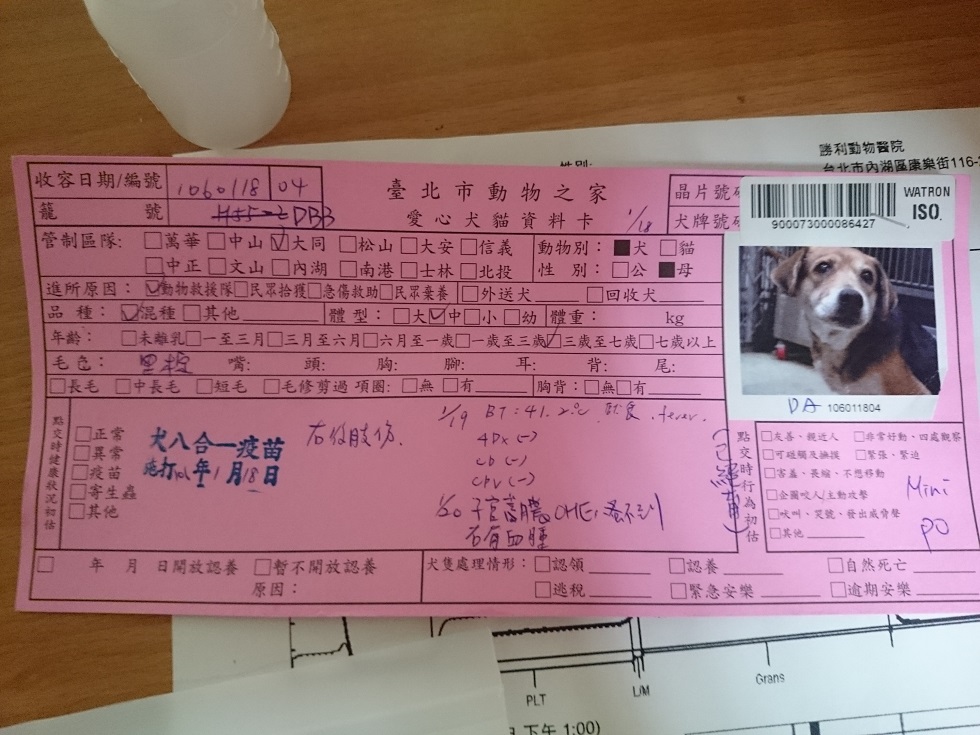 性別:
勝利動物醫院
台北市內湖區康樂街116-
收容日期/編號 1060118 04
臺北市動物之家
晶片號
籠 號 DBB
愛心犬貓資料卡 1/18
犬牌號
WATRON
ISO.
900073000086427
管制區隊: □萬華□中山☑大同 □松山□大安□信義 動物別:■犬 □貓
□中正□文山□內湖 □南港□士林□北投 性 別:□公■母
進所原因:☑動物救援隊□民眾拾獲□急傷救助□民眾棄養 □外送犬 □回收犬
品 種:☑混種□其他 體 型:□大☑中□小□幼 體重: kg
年齡: □未離乳□一至三月□三月至六月□六月至一歲□一歲至三歲☑三歲至七歲□七歲以上
毛色: 嘴: 頭: 胸: 腳: 耳: 背: 尾:
□長毛 □中長毛 □短毛 □毛修剪過 項圈:□無□有 胸背:□無□有
DA 106011804
點交時健康狀況初估
□正常
□異常
□疫苗
□寄生蟲
□其他
犬八合一疫苗
施打 年1月18日
右後肢傷.
1/19 BT:41.2℃ fever.
4Dx(-)
CD(-)
CPV(-)
1/20 子宮蓄膿 OHE,
右有血腫
(已絕育)
點交時行為初估
□友善、親近人 □非常好動、四處觀察
□可碰觸及撫摸 □緊張、緊迫
□害羞、畏縮、不想移動
□企圖咬人/主動攻擊
□吠叫、哭號、發出威脅聲
□其他
Mini
PO
□ 年 月 日開放認養 □暫不開放認養
原因:
犬隻處理情形:□認領 □認養 □自然死亡
□逃脫 □緊急安樂 □逾期安樂
PLT
L/M
Grans
下午 1:00)